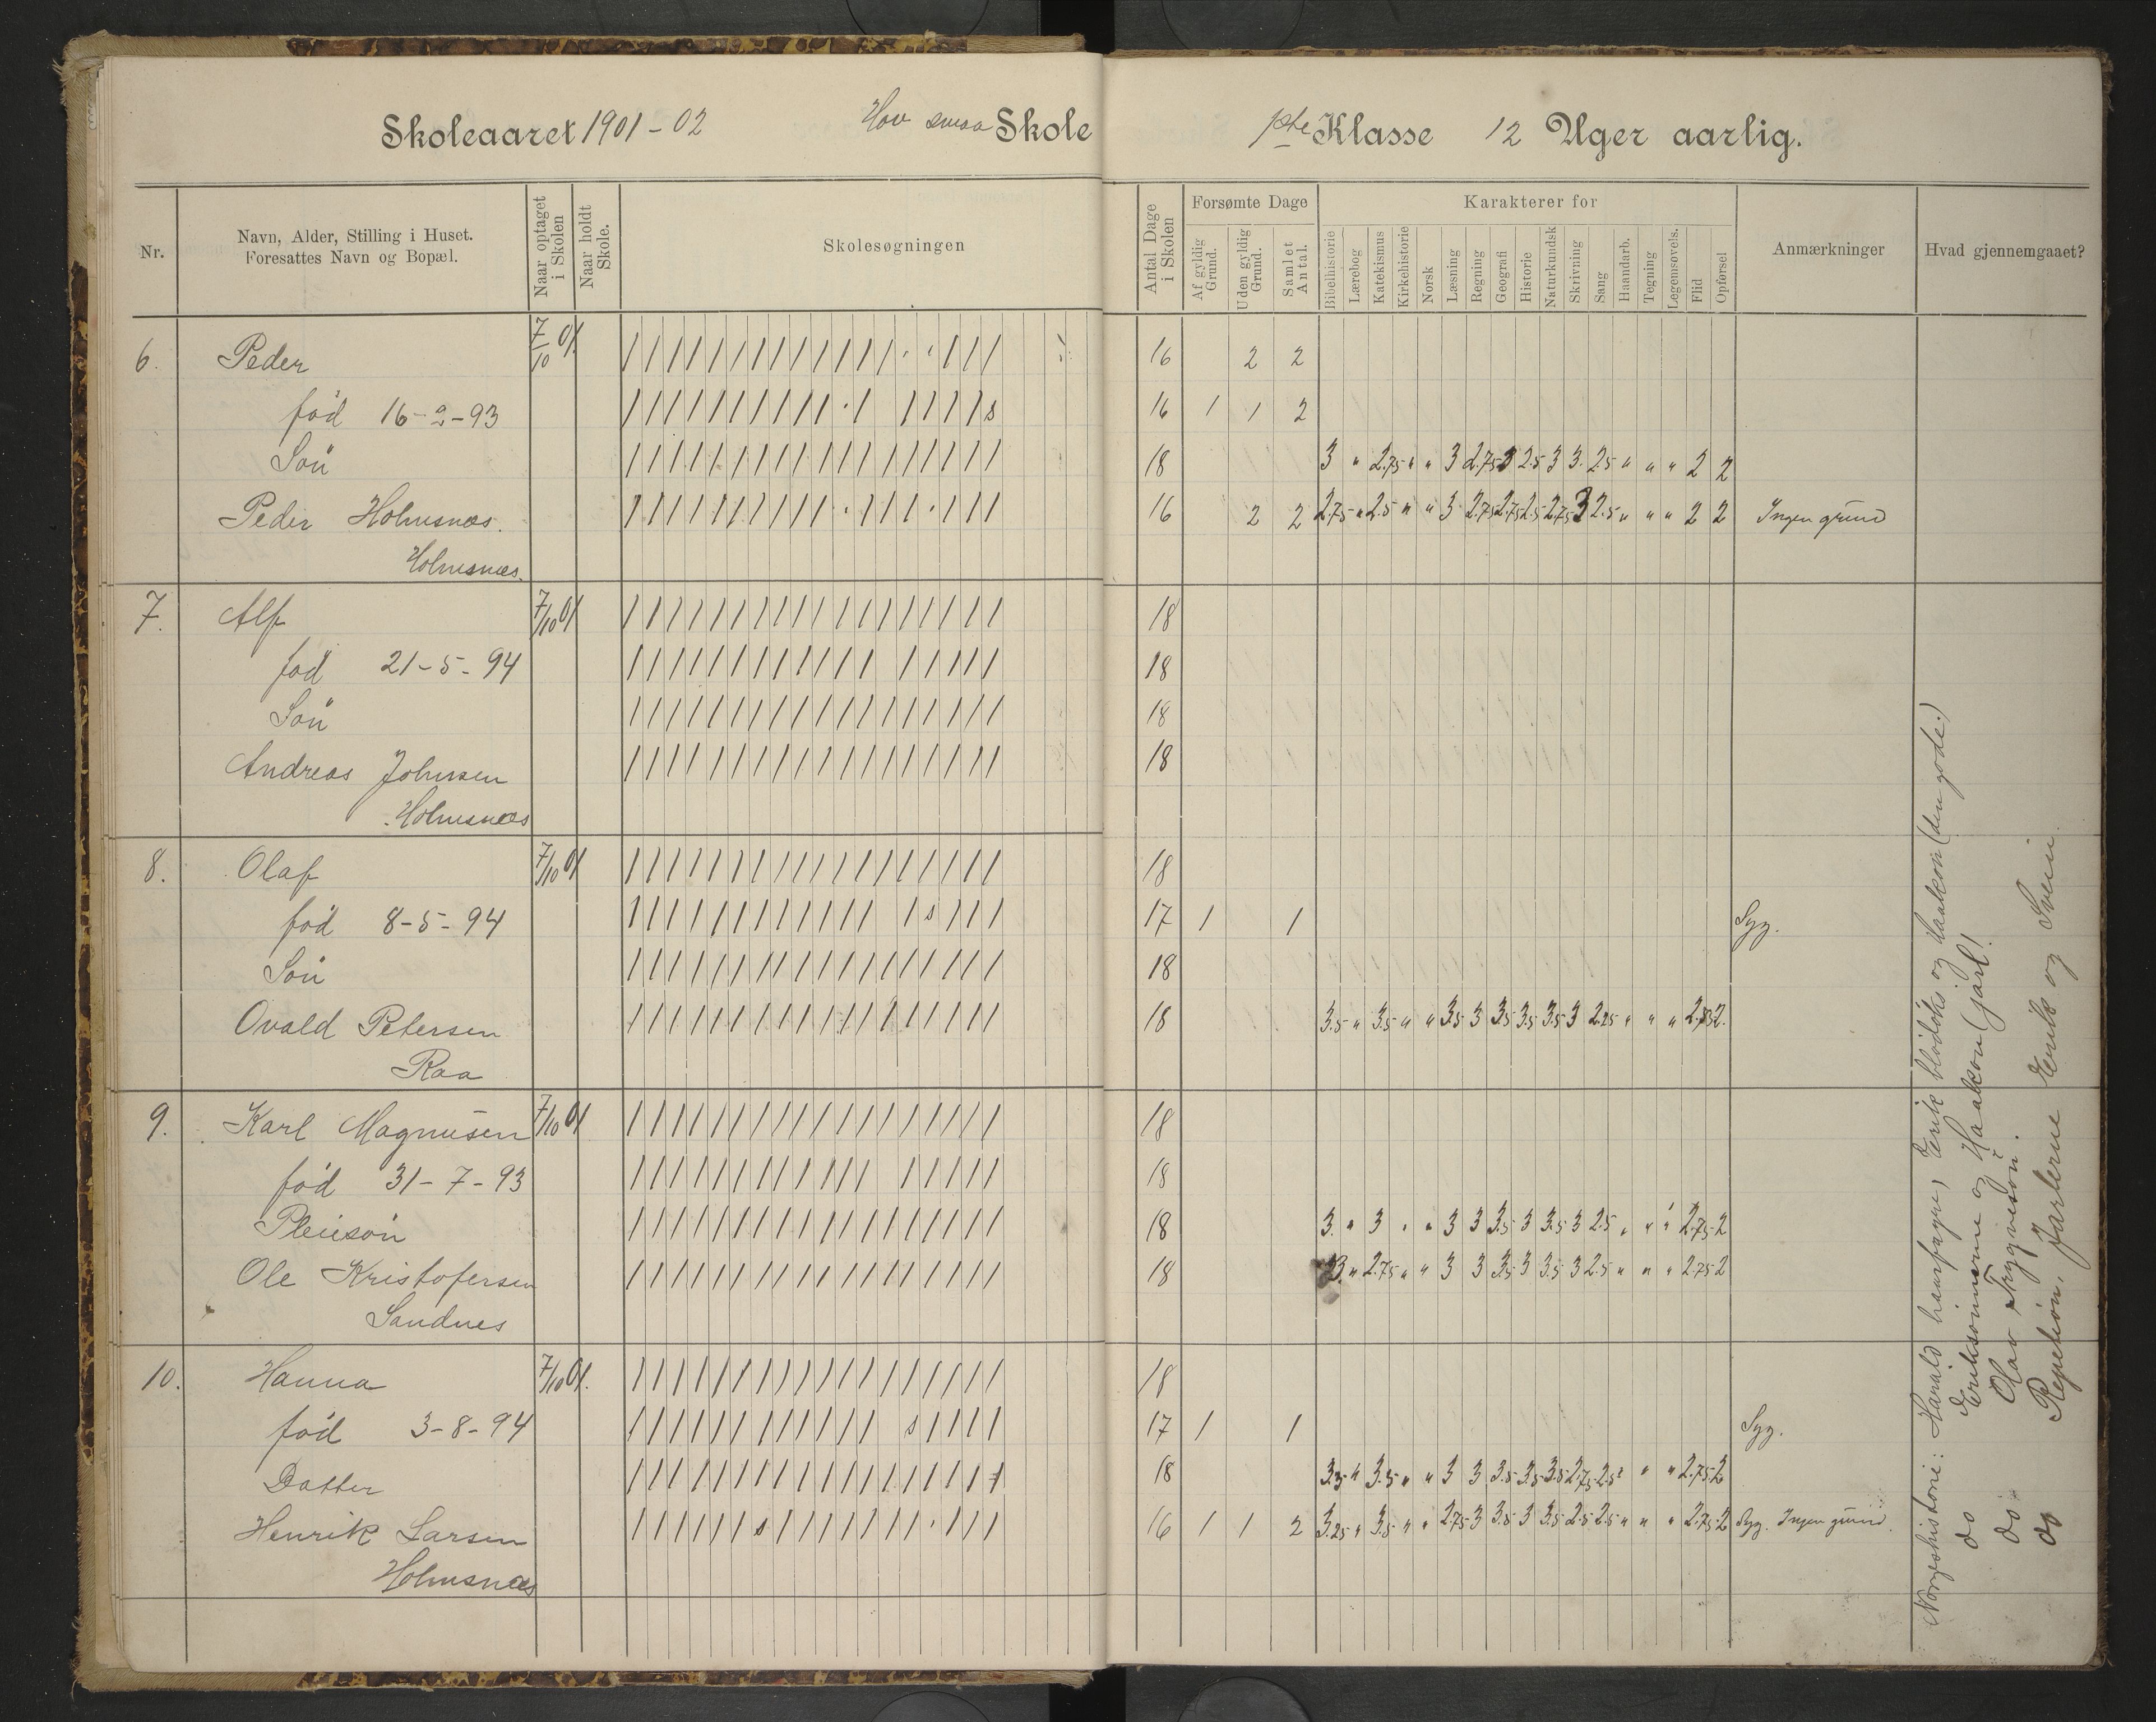 Skoleaaret 1901-02 Hov smaa Skole
1ste Klasse 12 Uger aarlig.
Nr.
Navn, Alder, Stilling i Huset.
Foresattes Navn og Bopæl.
Naar optaget i Skolen
Naar holdt Skole.
Skolesøgningen
Antal Dage i Skolen
Forsømte Dage
Af gyldig Grund.
Uden gyldig Grund.
Samlet Antal.
Karakterer for
Bibelhistorie
Lærebog
Katekismus
Kirkehistorie
Norsk
Læsning
Regning
Geografi
Historie
Naturkundsk
Skrivning
Sang
Haandarb.
Tegning
Legemsøvels.
Flid
Opførsel
Anmærkninger
Hvad gjennemgaaet?
6. Peder 7/10 01. 16 2 2
fød 16-2-93 16 1 1 2
Søn 18 3 " 2.75 " " 3 2.75 3 2.5 3 3. 2.5 " " " 2 2
Peder Holmsnæs. 16 2 2 2.75 " 2.5 " " 3 2.75 2.75 2.5 2.75 3 2.5 " " " 2 2 Ingen grund
Holmsnæs.
7. Alf 7/10 01 18
fød 21-5-94 18
Søn 18
Andreas Johnsen 18
Holmsnæs
8. Olaf 7/10 01 18
fød 8-5-94 17 1 1 Syg.
Søn 18
Ovald Petersen 18 3.5 " 3.5 " " 3.5 3 3.5 3.5 3.5 3 2.25 " " " 2.75 2.
Raa
9. Karl Magnusen 7/10 01 18
fød 31-7-93 18
Pleiesøn 18 3. " 3 " " 3 3 3.5 3 3.5 3 2.5 " " " 2.75 2
Ole Kristofersen 18 3. " 2.75 " " 3 3 3.5 3 3.5 3 2.5 " " " 2.75 2
Sandnes
10. Hanna 7/10 01. 18
fød 3-8-94 17 1 1 Syg.
Datter 18 3.5 " 3.5 " " 3 3 3.5 3.5 3.5 2.75 2.5 " " " 2.75 2
Henrik Larsen 16 1 1 2 3.25 " 3.5 " " 2.75 3 3.5 3 3.5 2.5 2.5 " " " 2.75 2 Syg. Ingen grund.
Holmsnæs
Norgeshistorie: Harald haarfagre, Erik blodøks og Haakon (den gode.)
do Erikssønnerne og Haakon (jarl).
do Olav Trygvesøn.
do Repetion, Jarlerne Erik og Svein